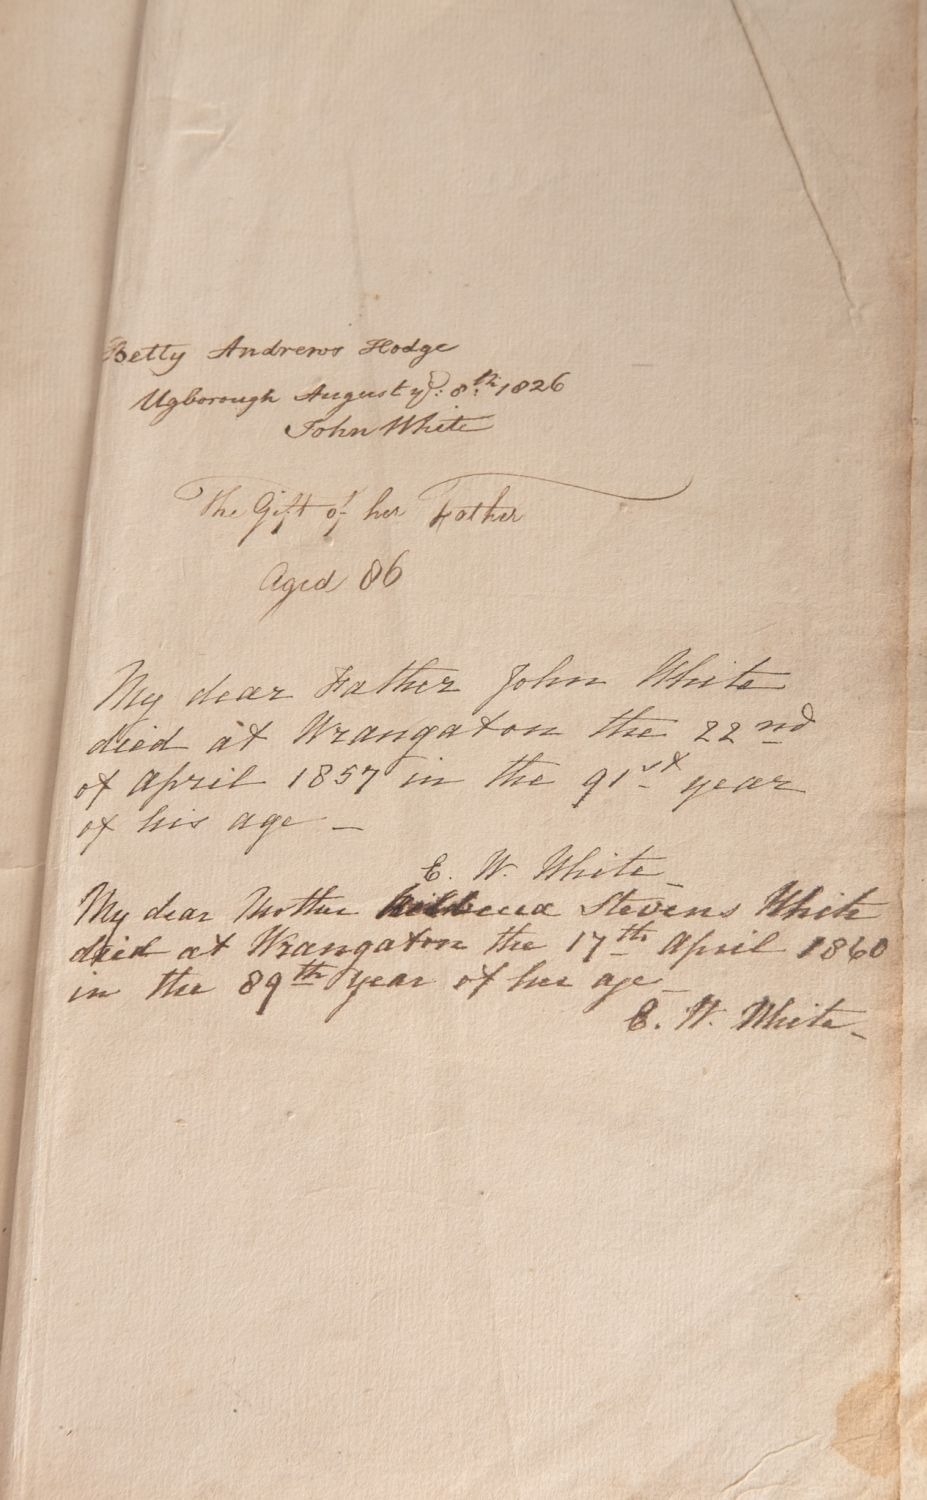 Betty Andrews Hodge
Ugborough August ye: 8th. 1826
John White
The Gift of her Father
Aged 86
My dear Father John White
died at Wrangaton the 22nd
of April 1857 in the 91st year
of his age –
E. W. White
My dear Mother Stevens White
died at Wrangaton the 17th April 1860
in the 89th year of her age –
E. W. White –